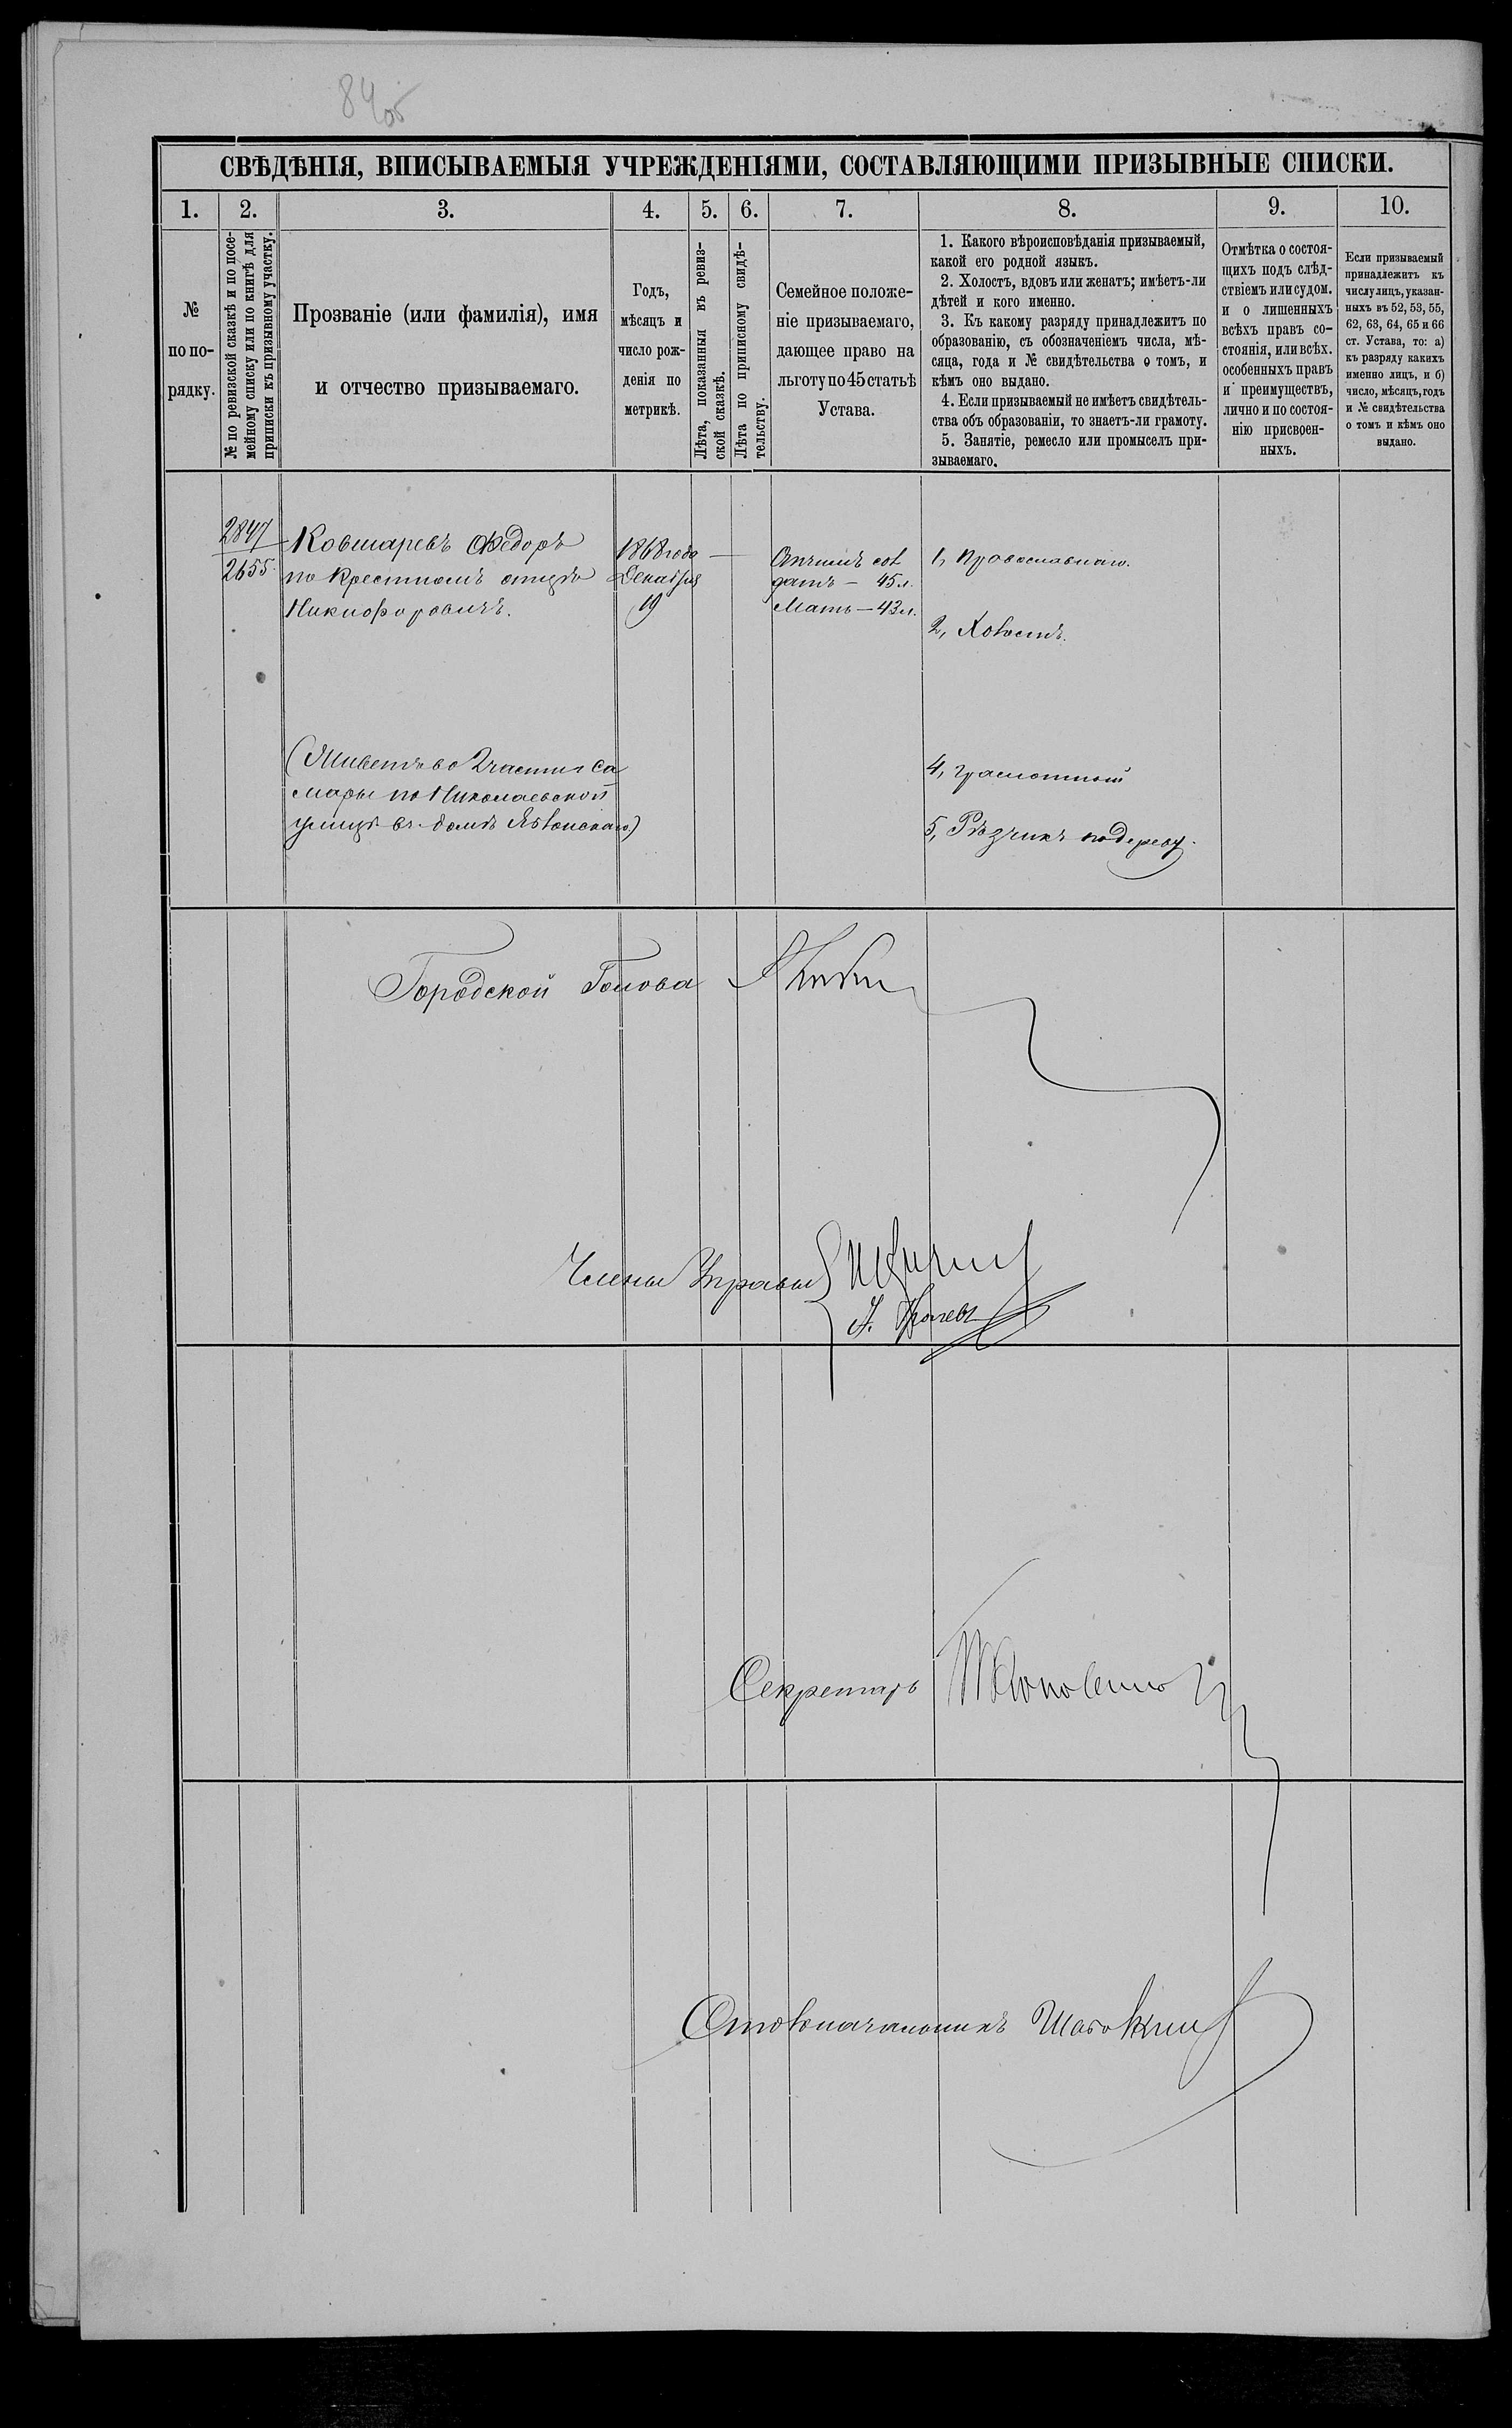 84об
СВѢДѢНІЯ, ВПИСЫВАЕМЫЯ УЧРЕЖДЕНІЯМИ, СОСТАВЛЯЮЩИМИ ПРИЗЫВНЫЕ СПИСКИ.
1.
№
по по-
рядку.
2.
№ по ревизской сказкѣ и по посе-
мейному списку или по книгѣ для
приписки къ призывному участку.
3.
Прозваніе (или фамилія), имя
и отчество призываемаго.
4.
Годъ,
мѣсяцъ и
число рож-
денія по
метрикѣ.
5.
Лѣта, показанныя въ ревиз-
ской сказкѣ.
6.
Лѣта по приписному свидѣ-
тельству.
7.
Семейное положе-
ніе призываемаго,
дающее право на
льготу по 45 статьѣ
Устава.
8.
1. Какого вѣроисповѣданія призываемый,
какой его родной языкъ.
2. Холостъ, вдовъ или женатъ; имѣетъ-ли
дѣтей и кого именно.
3. Къ какому разряду принадлежитъ по
образованію, съ обозначеніемъ числа, мѣ-
сяца, года и № свидѣтельства о томъ, и
кѣмъ оно выдано.
4. Если призываемый не имѣетъ свидѣтель-
ства объ образованіи, то знаетъ-ли грамоту.
5. Занятіе, ремесло или промыселъ при-
зываемаго.
9.
Отмѣтка о состоя-
щихъ подъ слѣд-
ствіемъ или судом.
и о лишенныхъ
всѣхъ правъ со-
стоянія, или всѣх.
особенныхъ правъ
и преимуществъ,
лично и по состоя-
нію присвоен-
ныхъ.
10.
Если призываемый
принадлежитъ къ
числу лицъ, указан-
ныхъ въ 52, 53, 55,
62, 63, 64, 65 и 66
ст. Устава, то: а)
къ разряду какихъ
именно лицъ, и б)
число, мѣсяцъ, годъ
и № свидѣтельства
о томъ и кѣмъ оно
выдано.
2847
2655.
Ковшаревъ Ѳедоръ
по крестномъ отцѣ
Никифоровичъ.
1868 года
Декабря
19
—
Отчимъ сол
датъ — 45 л.
Мать — 43 л.
1, Православнаго.
2, Холостъ.
(Живетъ во 2 части г Са
мары по Николаевской
улицѣ въ домѣ)
4, грамотный
5, Рѣзчикъ по дереву.
Городской Голова
Члены Управы
Секретарь
Столоначальникъ